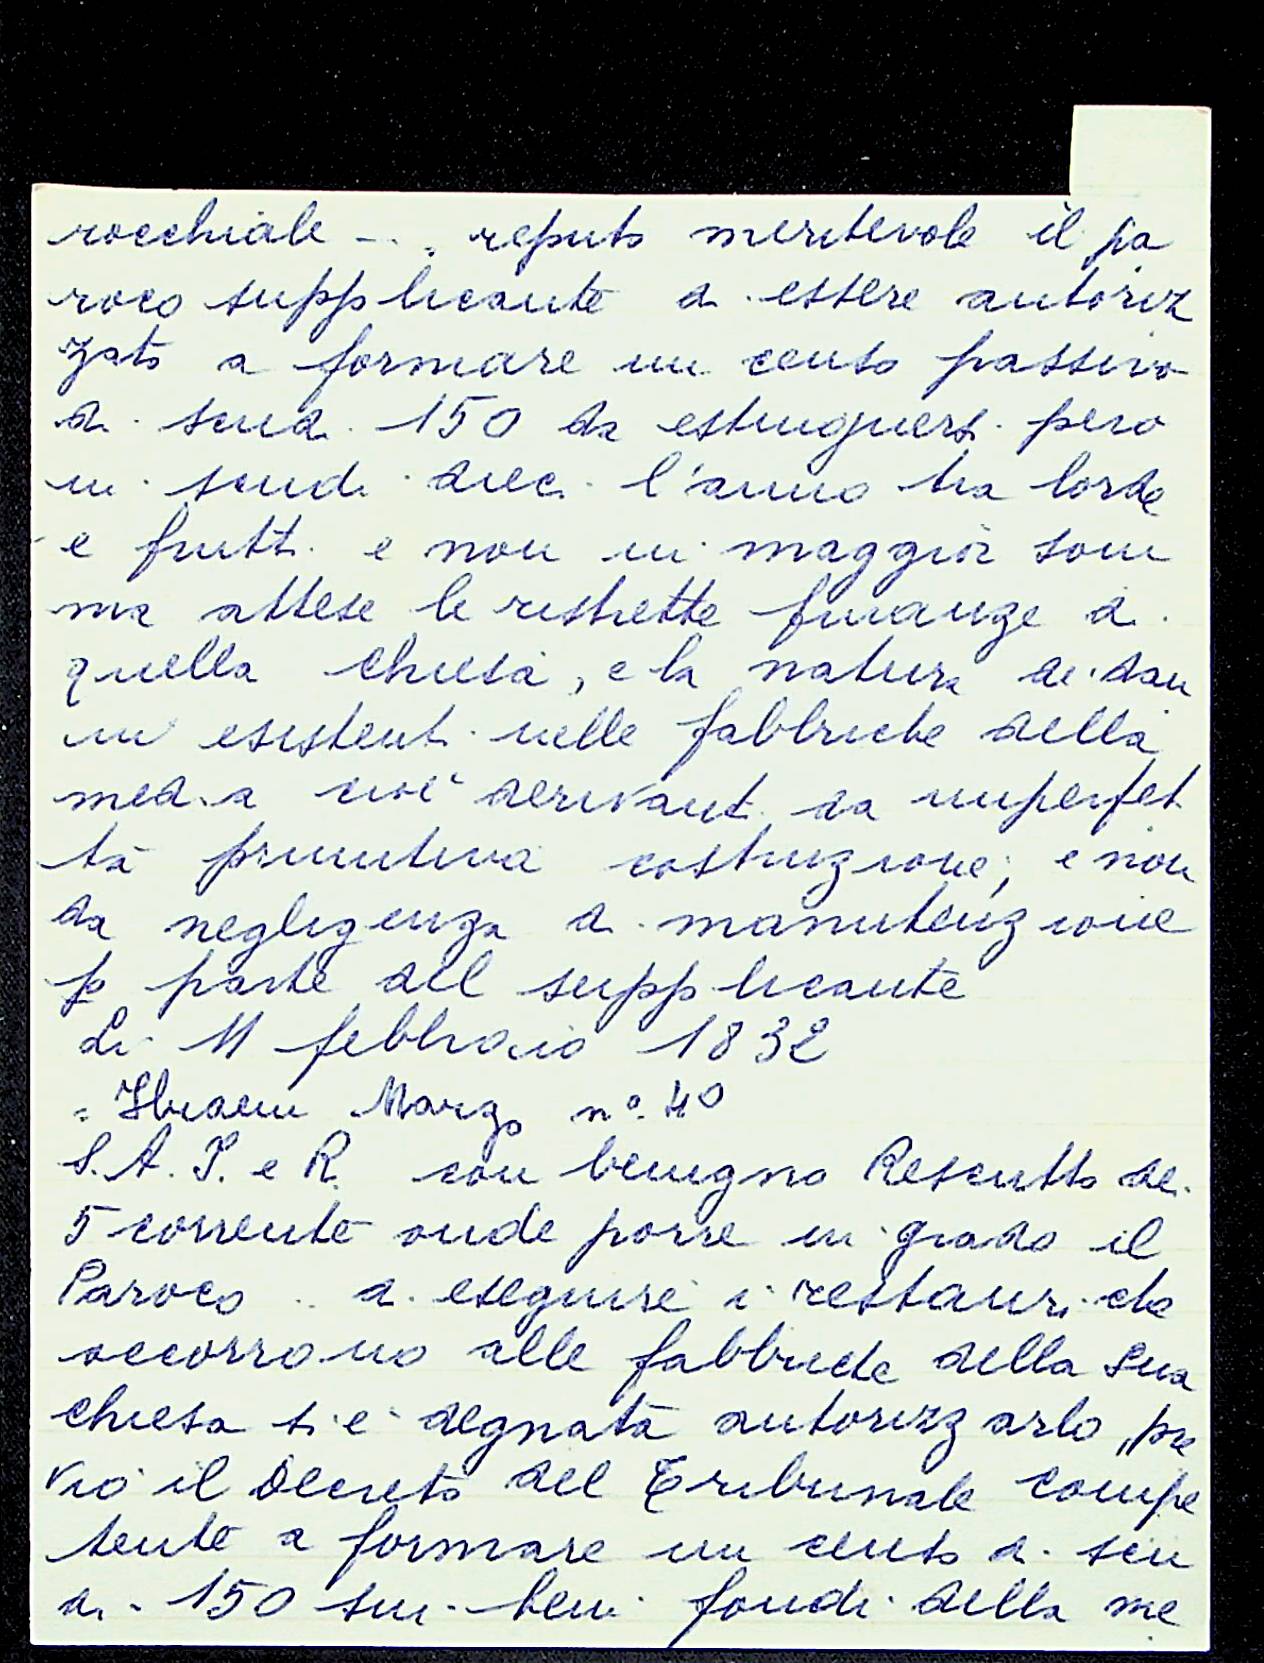 rocchiale - . . reputo meritevole il pa
roco supplicante a essere autoriz
zato a formare un censo passivo
di scudi 150 da estinguersi però
in scudi dieci l'anno tra sorte
e frutti e non in maggior som
ma attese le ristrette finanze di
quella chiesa, e la natura dei dan
ni esistenti nelle fabbriche della
med.a cioè derivanti da imperfet
ta primitiva costruzione; e non
da negligenza di manutenzione
p parte del supplicante
Li 11 febbraio 1832
= Marzo n° 40
S. A. I. e R. con benigno Rescritto dei
5 corrente onde porre in grado il
Paroco .. di eseguire i restauri che
occorrono alle fabbriche della sua
chiesa si è degnata autorizzarlo, pre
vio il Decreto del Tribunale compe
tente a formare un censo di scu
di 150 sui beni fondi della me